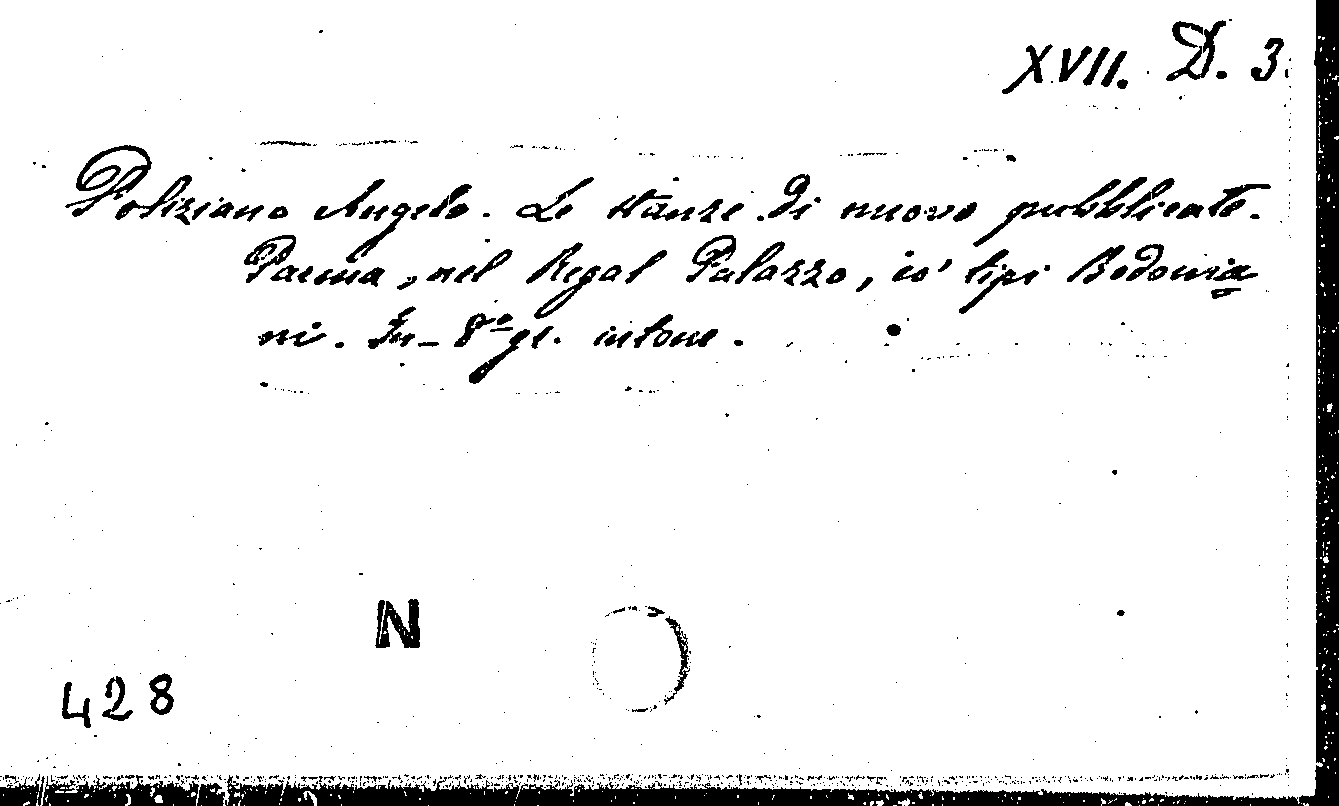 XVII. D. 3.
Poliziano Angelo. Le stanze di nuovo pubblicate.
Parma, nel Regal Palazzo, co' tipi Bodonia
ni. In-8º gr. intone.
N
428